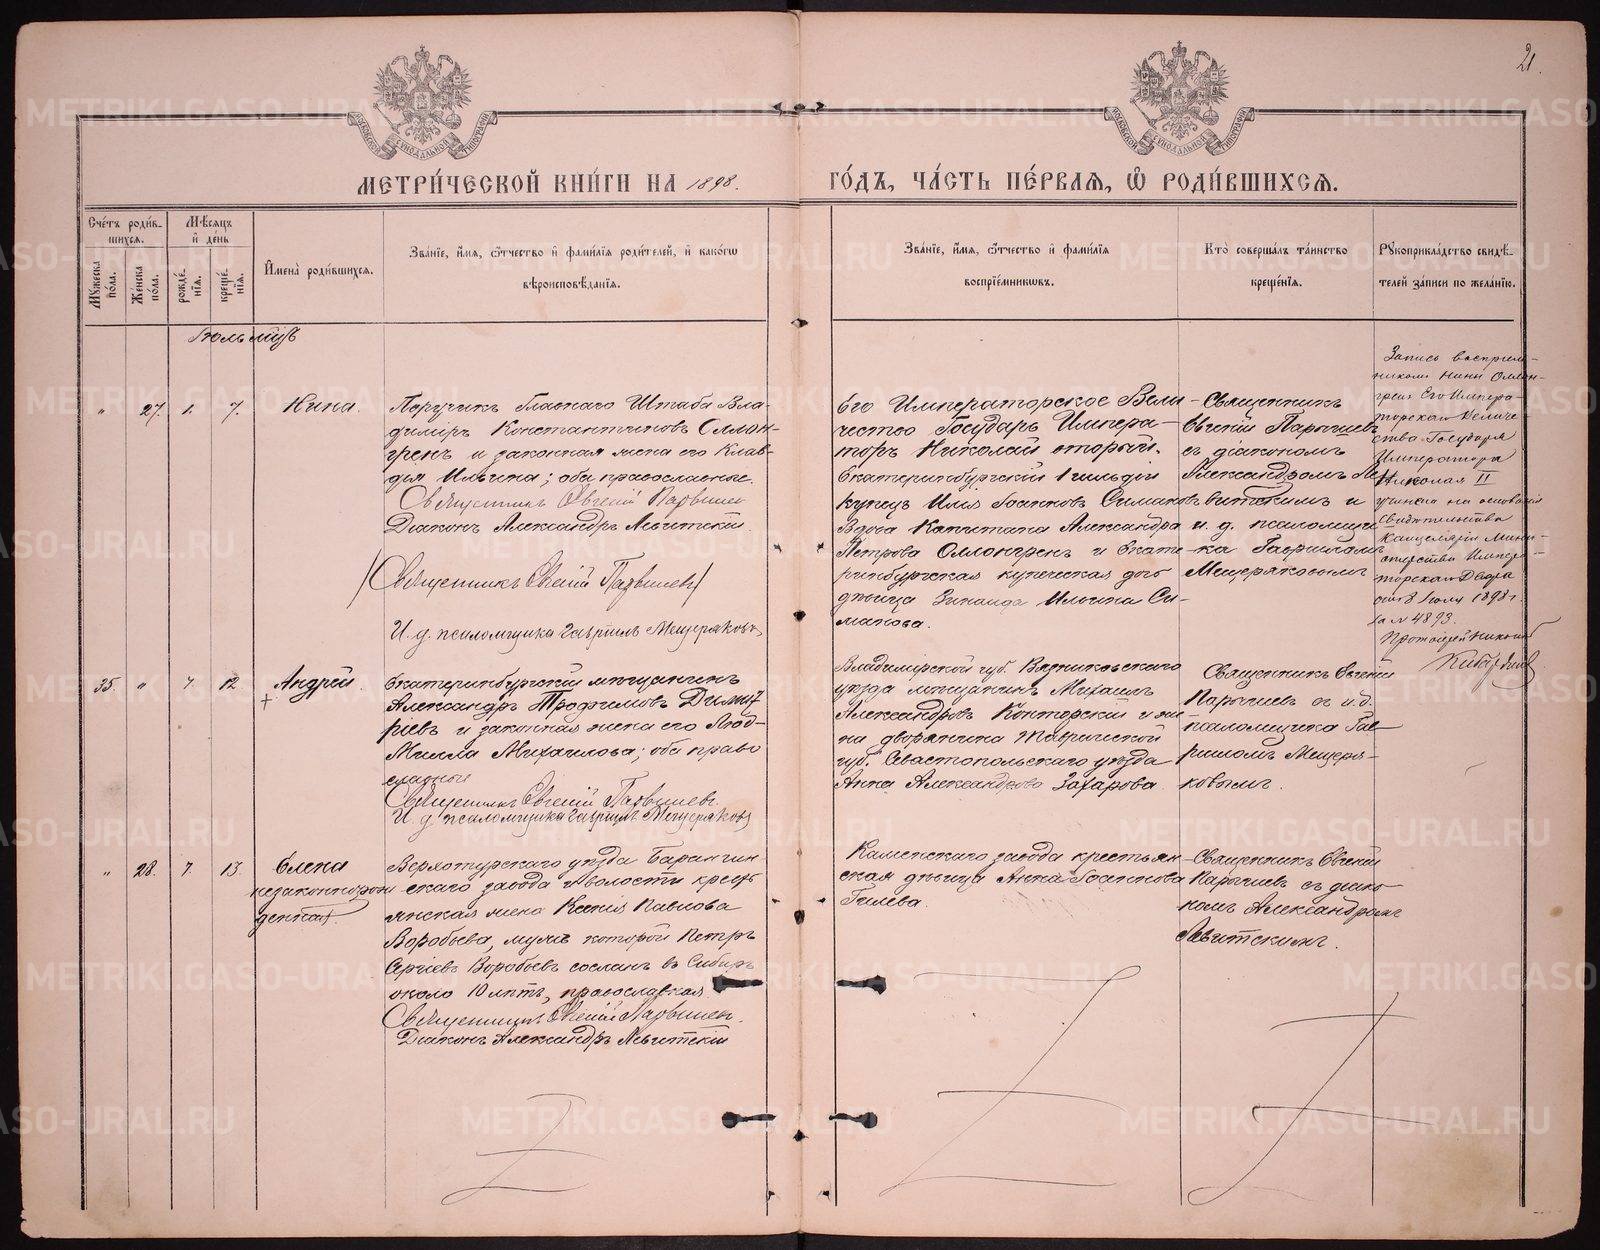 21.
МОСКОВСКОЙ СУНОДАЛЬНОЙ ТИПОГРАФІИ
МОСКОВСКОЙ СУНОДАЛЬНОЙ ТИПОГРАФІИ
МЕТРИ́ЧЕСКОЙ КНИ́ГИ НА 1898.
ГО́ДЪ, ЧА́СТЬ ПЕ́РВАЯ, Ѽ РОДИ́ВШИХСЯ.
Сче́тъ роди́в-
шихся.
Мѣ́сяцъ
и҆ де́нь
Мꙋ́жеска по́ла.
Же́нска по́ла.
рожде́нїя.
креще́нїя.
И҆мена̀ роди́вшихся.
Зва́нїе, и҆́мя, ѻ҆́тчество и҆ фами́лїя роди́телей, и҆ како́гѡ
вѣроисповѣ́данїя.
Зва́нїе, и҆́мя, ѻ҆́тчество и҆ фами́лїя
воспрїе́мникѡвъ.
Кто̀ соверша́лъ та́инство
креще́нїя.
Рꙋкоприкла́дство свидѣ́-
телей за́писи по жела́нїю.
Іюль мцъ
" 27. 1. 7. Нина.
Поручикъ Главнаго Штаба Вла-
димiръ Константиновъ Оллон-
гренъ и законная жена его Клав-
дiя Ильина; оба православные.
Священникъ Евгенiй Парышев
Дiаконъ Александръ Левитскiй
(Священникъ Евгенiй Парышевъ)
И. д. псаломщика Гаврiилъ Мещеряковъ
Его Императорское Вели-
чество Государь Импера-
торъ Николай вторый.
Екатеринбургскiй 1 гильдiи
купецъ Илiя Iоанновъ Симановъ
Вдова Капитана Александра
Петрова Оллонгренъ и Екате-
ринбургская купеческая дочь
дѣвица Зинаида Ильина Си-
манова.
Священникъ
Евгенiй Парышевъ
съ дiакономъ
Александромъ Ле-
витскимъ и
и. д. псаломщи-
ка Гаврiиломъ
Мещеряковымъ
Запись воспрiем-
никомъ Нины Оллон-
гренъ Его Импера-
торскаго Величе-
ства Государя
Императора
Николая II
учинена на основанiи
свидѣтельства
Канцелярiи Мини-
стерства Импера-
торскаго Двора
отъ 8 Iюля 1898 г.
за № 4893.
Протоiерей Николай
35. " 7. 12. Андрей.
Екатеринбургскiй мѣщанинъ
Александръ Трофимовъ Димит-
рiевъ и законная жена его Люд-
милла Михаилова; оба право-
славные
Священникъ Евгенiй Парышевъ.
И. д. псаломщика Гаврiилъ Мещеряковъ
Владимiрской губ. Вязниковскаго
уѣзда мѣщанинъ Михаилъ
Александровъ Конторскiй и же-
на дворянина Таврической
губ. Севастопольскаго уѣзда
Анна Александрова Захарова.
Священникъ Евгенiй
Парышевъ съ и. д.
псаломщика Гав-
рiиломъ Мещеря-
ковымъ.
" 28. 7. 13. Елена
незаконнорож-
денная.
Верхотурскаго уѣзда Баранчин-
скаго завода и волости кресть-
янская жена Ксенiя Павлова
Воробьева, мужъ которой Петръ
Сергiевъ Воробьевъ сосланъ въ Сибирь
около 10 лѣтъ, православная.
Священникъ Евгенiй Парышевъ.
Дiаконъ Александръ Левитскiй
Каменскаго завода крестьян-
ская дѣвица Анна Iоаннова
Гилева.
Священникъ Евгенiй
Парышевъ съ дiако-
номъ Александромъ
Левитскимъ.
METRIKI.GASO-URAL.RU